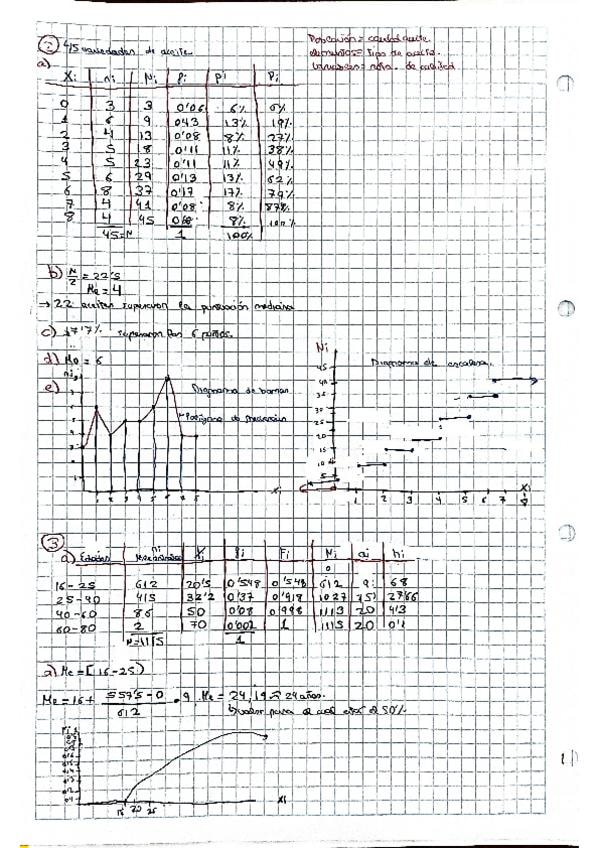 Población = cantidad aceite
② 45 variedades de aceite
elementos = tipo de aceite.
variables = nota de calidad
a)
Xi ni Ni fi pi Pi
0 3 3 0'06 6% 6%
1 6 9 0'13 13% 19%
2 4 13 0'08 8% 27%
3 5 18 0'11 11% 38%
4 5 23 0'11 11% 49%
5 6 29 0'13 13% 62%
6 8 37 0'17 17% 79%
7 4 41 0'08 8% 87%
8 4 45 8% 100%
45=N 1 100%
b) N/2 = 22'5
Me = 4
→ 22 aceites superaron la puntuación mediana
c) 17'7% superaron los 6 puntos.
d) Mo = 6
Ni
Diagrama de escalera.
e) ni
Diagrama de barras
Polígono de frecuencias
45
40
35
30
25
20
15
10
5
1 2 3 4 5 6 7 8 Xi
1 2 3 4 5 6 7 8 Xi
③
a) Edades ni Xi fi Fi Ni ai hi
0
16-25 612 20'5 0'548 0'548 612 9 68
25-40 415 32'2 0'37 0'918 1027 15 27'66
40-60 86 50 0'08 0'998 1113 20 4'3
60-80 2 70 0'002 1 1115 20 0'1
N=1115 1
a) Me = [16-25)
Me = 16 + 557'5-0 / 612 · 9 Me = 24,19 ≈ 24 años.
valor para el cual está el 50%
16 20 25 Xi